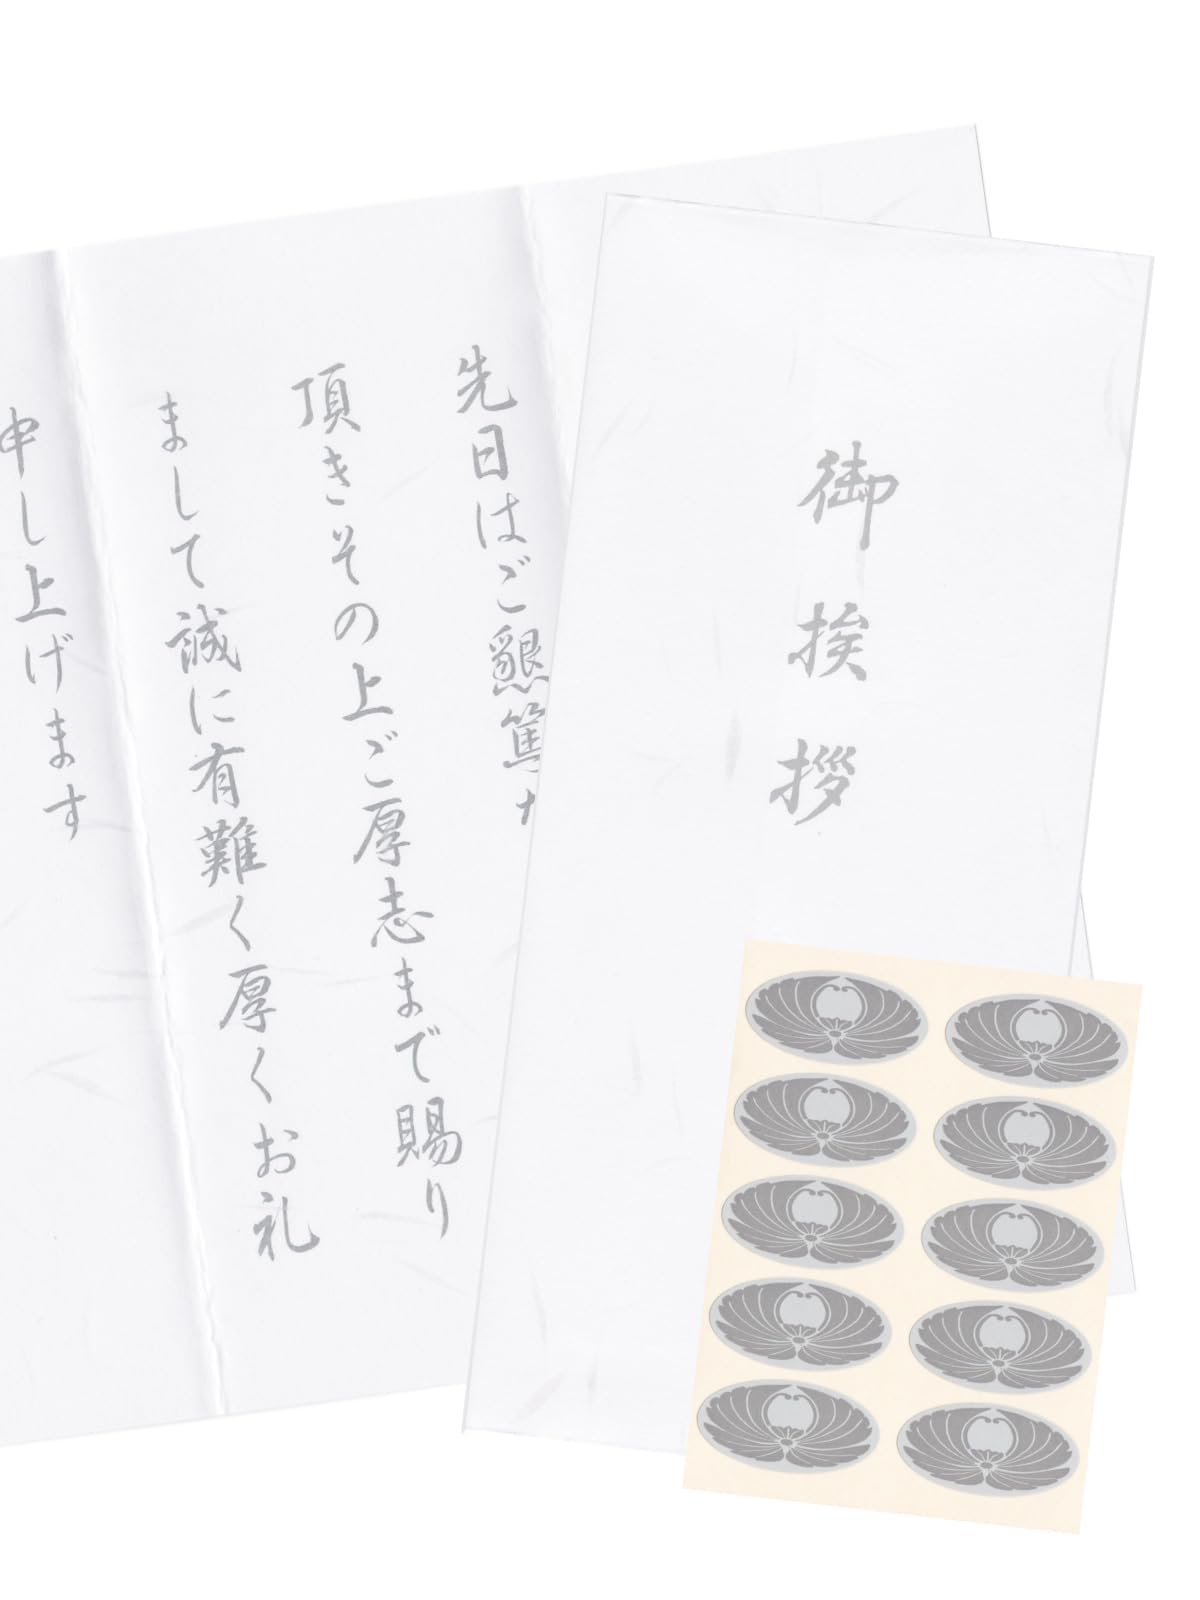 御挨拶
先日はご懇篤
頂きその上ご厚志まで賜り
まして誠に有難く厚くお礼
申し上げます